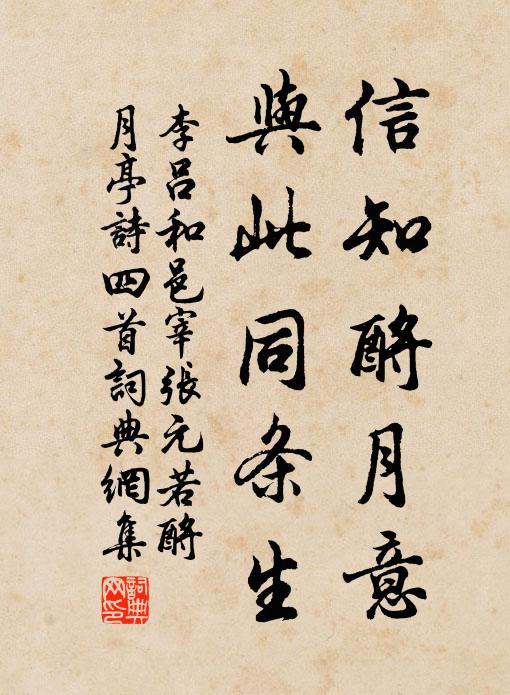 信知酹月意
與此同条生
李呂和邑宰張元若酹
月亭詩四首詞典網集
詞典网印